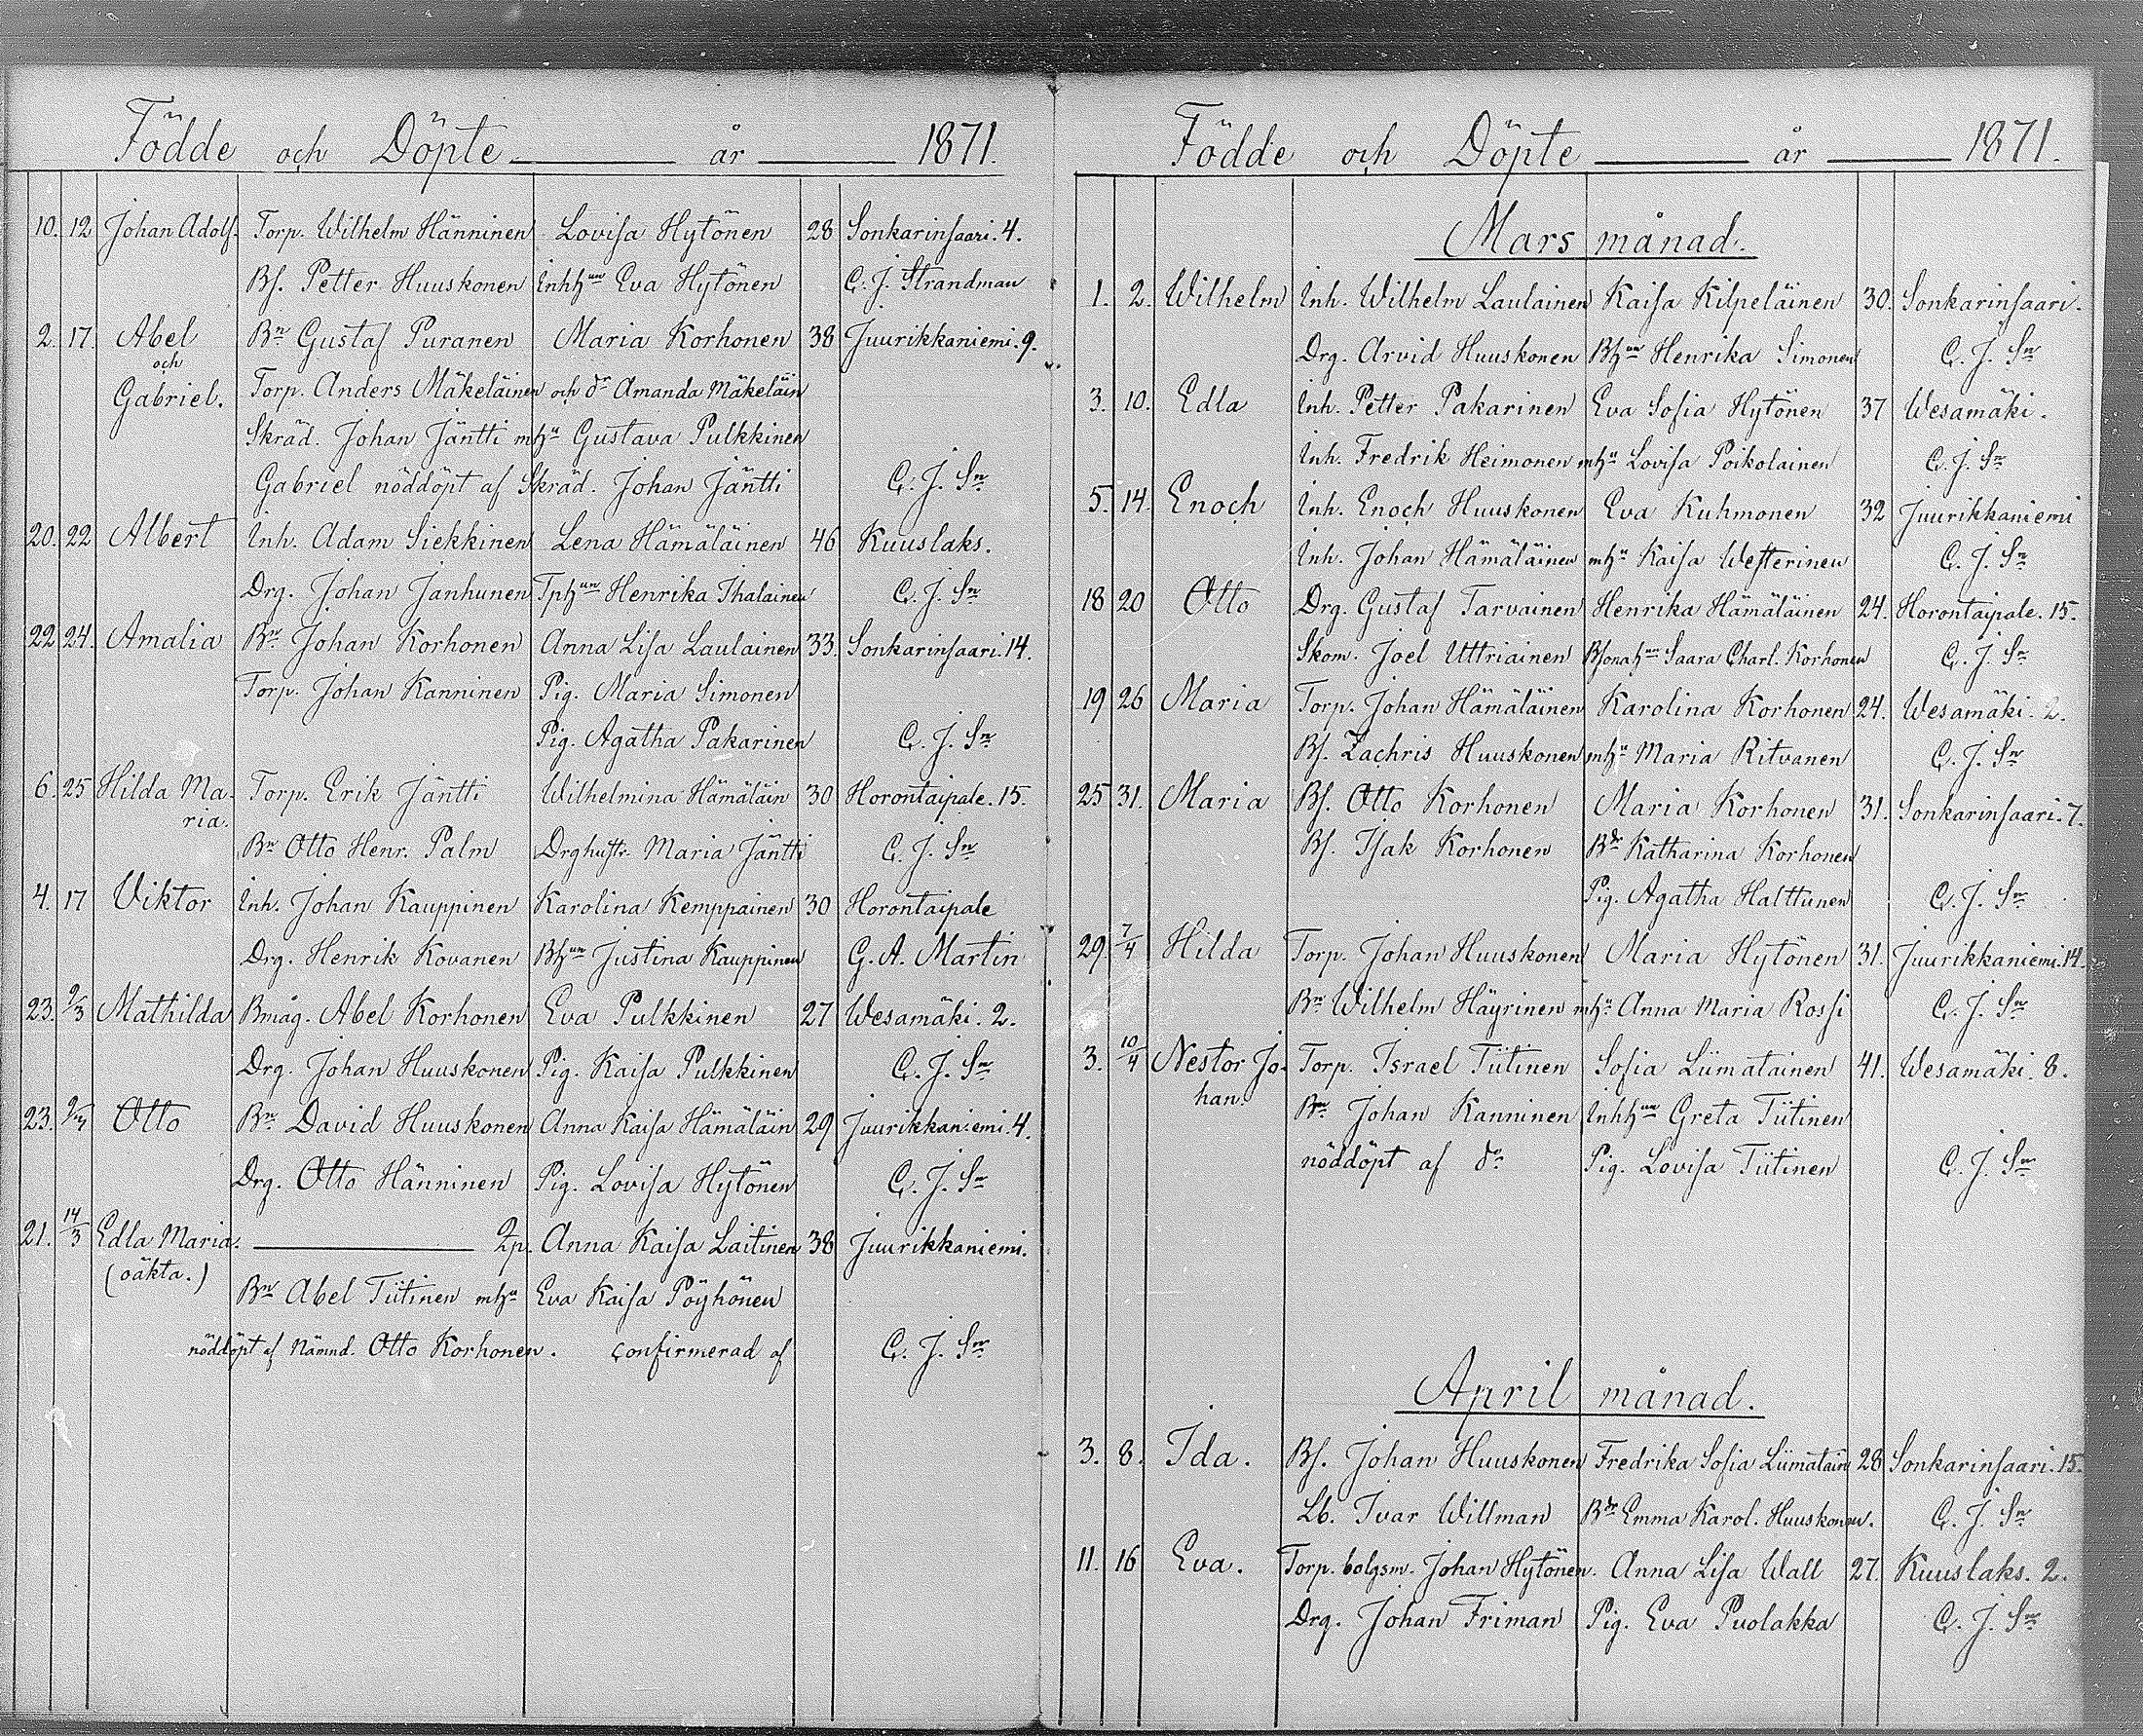 Födde och Döpte år 1871.
10. 12 Johan Adolf. Torp. Wilhelm Hänninen Lovisa Hytönen 28 Sonkarinsaari. 4.
Bs. Petter Huuskonen Inhhun Eva Hytönen C. J. Strandman
2. 17. Abel Bn Gustaf Puranen Maria Korhonen 38 Juurikkaniemi. 9.
och
Gabriel. Torp. Anders Mäkeläinen och dr Amanda Mäkeläin
Skräd. Johan Jäntti mhu Gustava Pulkkinen
Gabriel nöddöpt af Skräd. Johan Jäntti C. J. Sn
20. 22 Albert Inh. Adam Siekkinen Lena Hämäläinen 46 Kuuslaks.
Drg. Johan Janhunen Tphun Henrika Ihalainen C. J. Sn
22 24. Amalia Bn Johan Korhonen Anna Lisa Laulainen 33. Sonkarinsaari. 14.
Torp. Johan Kanninen Pig. Maria Simonen
Pig. Agatha Pakarinen C. J. Sn
6. 25 Hilda Ma- Torp. Erik Jäntti Wilhelmina Hämäläin 30 Horontaipale. 15.
ria.
Bn Otto Henr. Palm Drghustr. Maria Jäntti C. J. Sn
4. 17 Viktor Inh. Johan Kauppinen Karolina Kemppainen 30 Horontaipale
Drg. Henrik Kovanen Bhun Justina Kauppinen G. A. Martin
23. 2/3 Mathilda Bmåg. Abel Korhonen Eva Pulkkinen 27 Wesamäki. 2.
Drg. Johan Huuskonen Pig. Kaisa Pulkkinen C. J. Sn
23. 2/3 Otto Bn David Huuskonen Anna Kaisa Hämäläin 29 Juurikkaniemi. 4.
Drg. Otto Hänninen Pig. Lovisa Hytönen C. J. Sn
21. 14/3 Edla Maria. Qp. Anna Kaisa Laitinen 38 Juurikkaniemi.
(oäkta.)
Bn Abel Tiitinen mhu Eva Kaisa Pöyhönen
nöddöpt af Nämnd. Otto Korhonen. confirmerad af C. J. Sn
Födde och Döpte år 1871.
Mars månad.
1. 2. Wilhelm Inh. Wilhelm Laulainen Kaisa Kilpeläinen 30. Sonkarinsaari.
Drg. Arvid Huuskonen Bhun Henrika Simonen C. J. Sn
3. 10. Edla Inh. Petter Pakarinen Eva Sofia Hytönen 37 Wesamäki.
Inh. Fredrik Heimonen mhu Lovisa Poikolainen C. J. Sn
5. 14. Enoch Inh. Enoch Huuskonen Eva Kuhmonen 32 Juurikkaniemi
Inh. Johan Hämäläinen mhu Kaisa Westerinen C. J. Sn
18 20 Otto Drg. Gustaf Tarvainen Henrika Hämäläinen 24. Horontaipale. 15.
Skom. Joel Uttriainen Bsonahun Saara Charl. Korhonen C. J. Sn
19 26 Maria Torp. Johan Hämäläinen Karolina Korhonen 24. Wesamäki. 2.
Bs. Zachris Huuskonen mhu Maria Ritvanen C. J. Sn
25 31. Maria Bs. Otto Korhonen Maria Korhonen 31. Sonkarinsaari. 7.
Bs. Isak Korhonen Bdr Katharina Korhonen
Pig. Agatha Halttunen C. J. Sn
29. 7/4 Hilda Torp. Johan Huuskonen Maria Hytönen 31. Juurikkaniemi. 14.
Bn Wilhelm Häyrinen mhu Anna Maria Rossi C. J. Sn
3. 10/4 Nestor Jo- Torp. Israel Tiitinen Sofia Liimatainen 41. Wesamäki. 8.
han.
Bn Johan Kanninen Inhhun Greta Tiitinen
nöddöpt af do Pig. Lovisa Tiitinen C. J. Sn
April månad.
3. 8. Ida. Bs. Johan Huuskonen Fredrika Sofia Liimatain 28 Sonkarinsaari. 15.
Lb. Ivar Willman Bdr Emma Karol. Huuskonen. C. J. Sn
11. 16 Eva. Torp. bolgsm. Johan Hytönen. Anna Lisa Wall 27. Kuuslaks. 2.
Drg. Johan Friman Pig. Eva Puolakka C. J. Sn